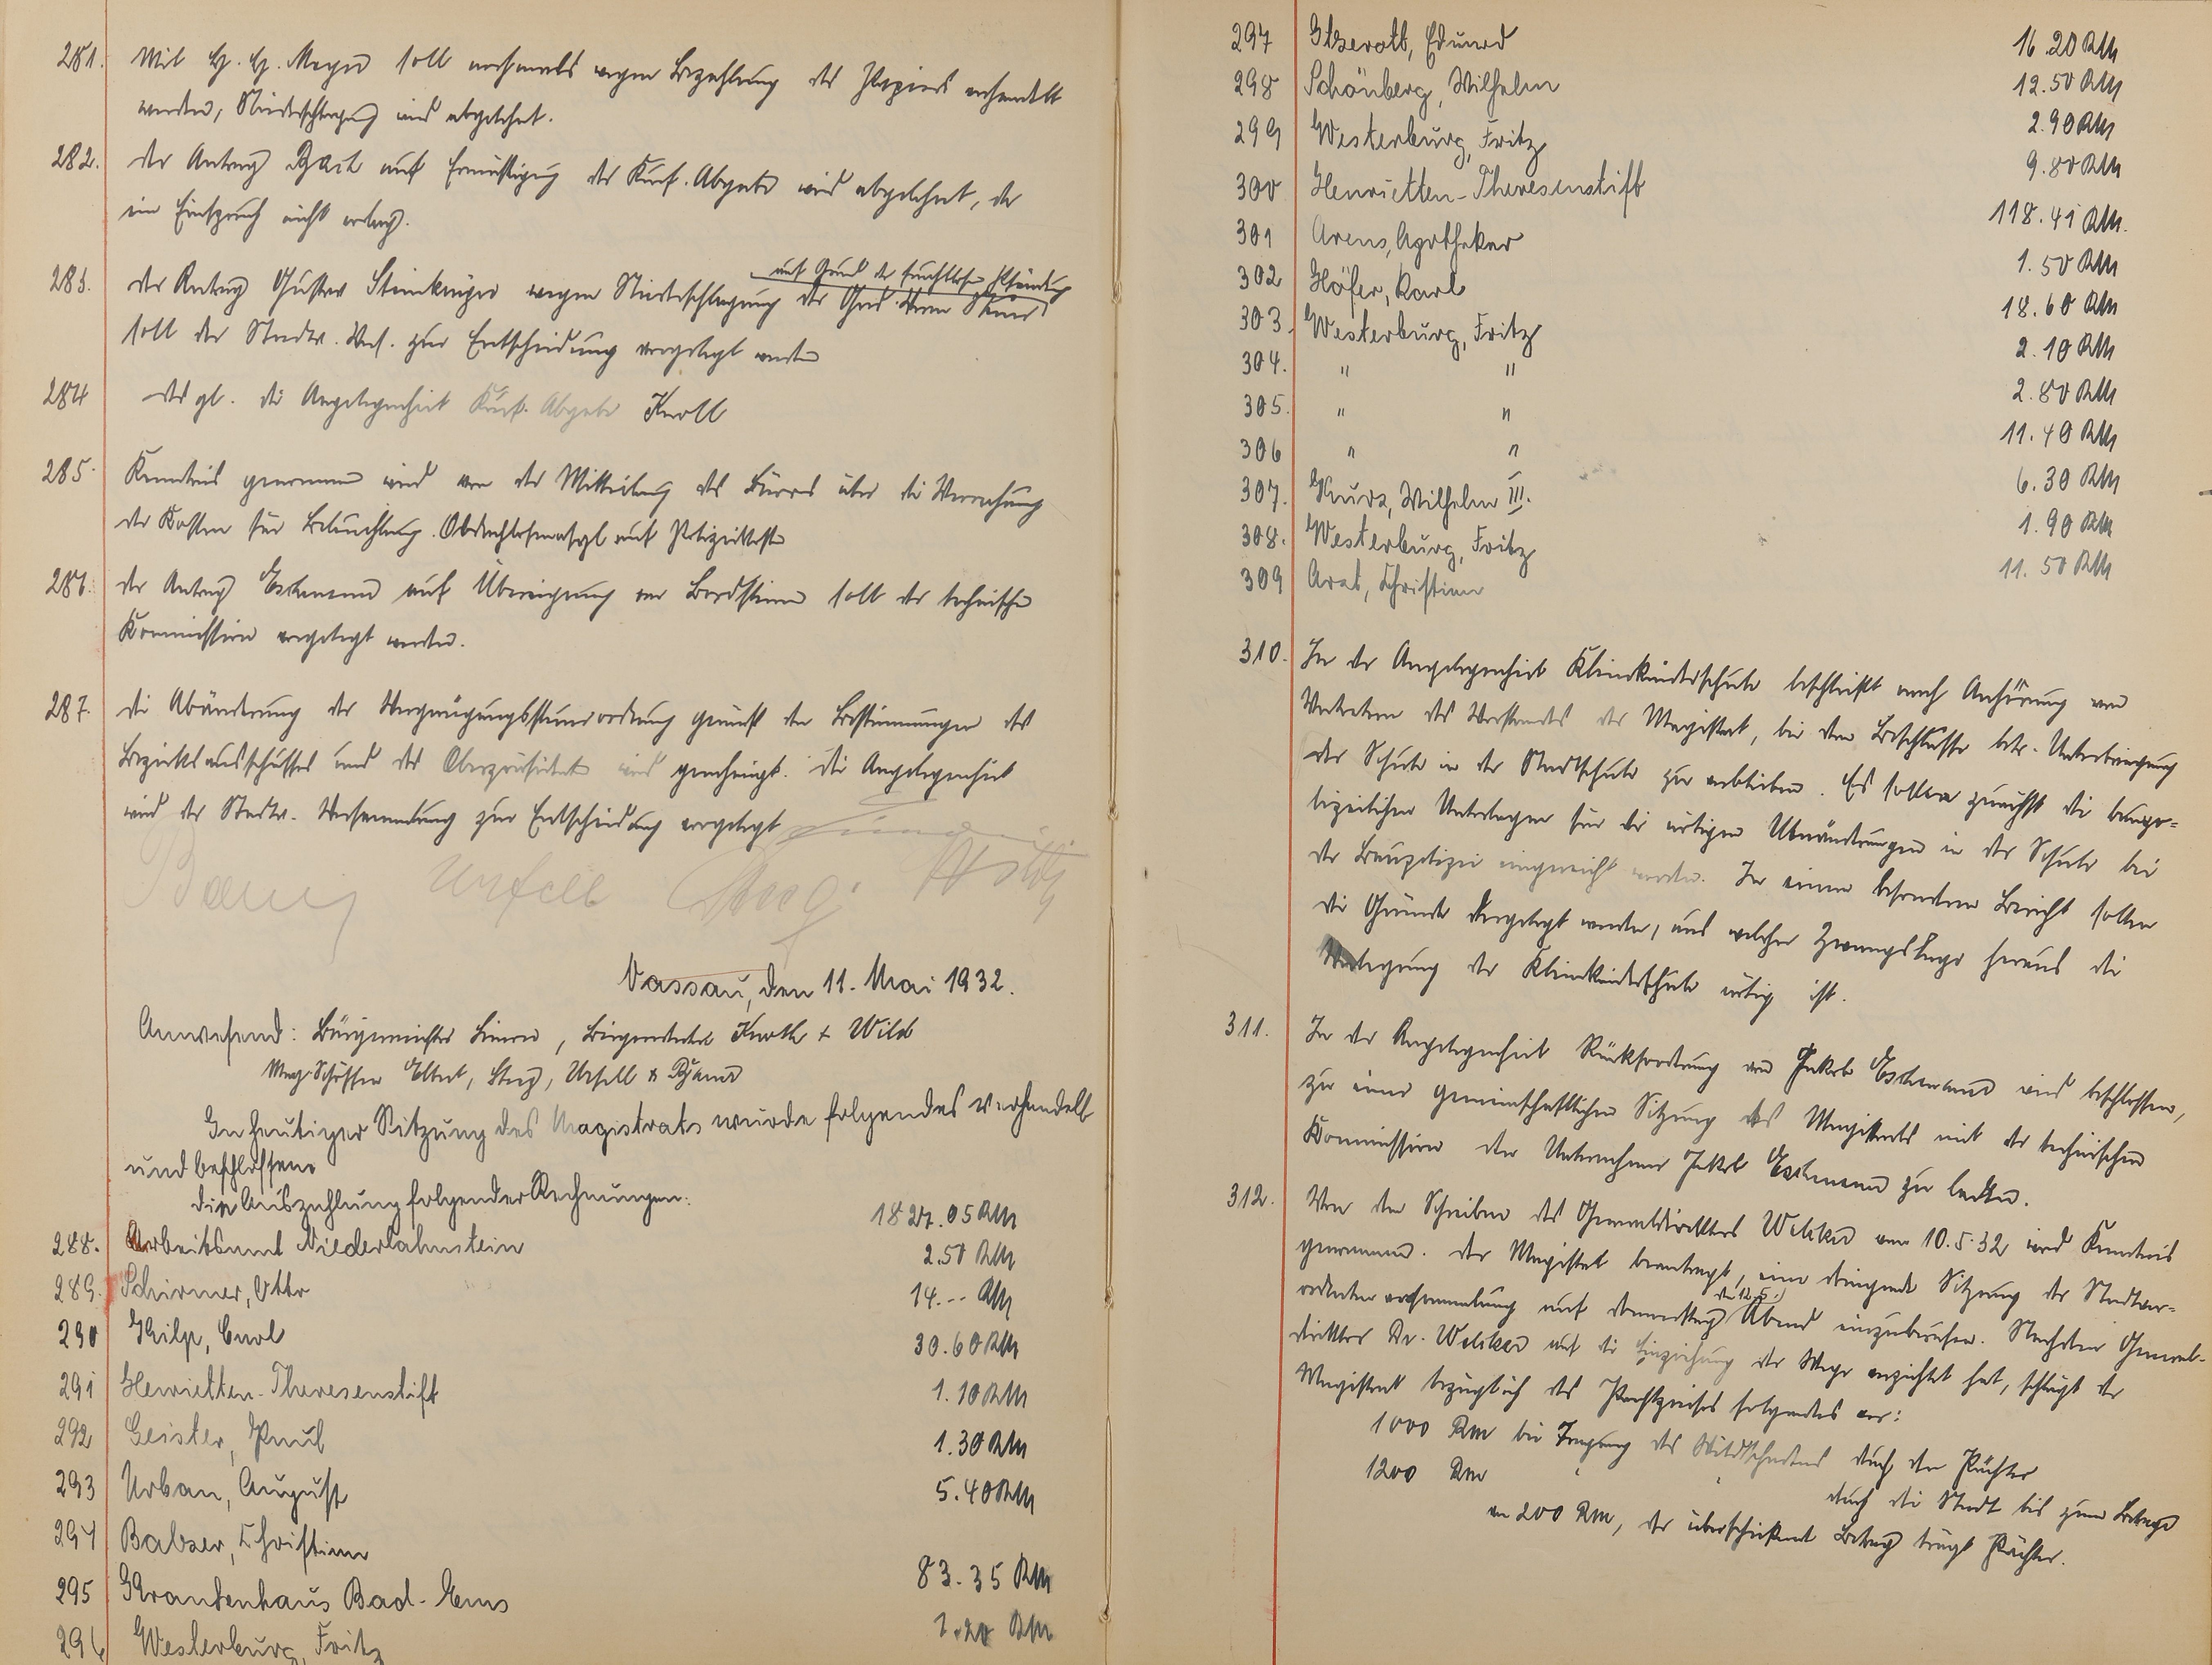 281. Mit H. H. Meyer soll nochmals wegen Bezahlung des Papiers verhandelt
werden, Niederschlagung wird abgelehnt.
282. Der Antrag Bach auf Ermäßigung der Kurf. Abgabe wird abgelehnt, da
ein Einspruch nicht vorlag.
283. Der Antrag Gustav Steinkrüger wegen Niederschlagung der
auf Grund der fruchtlosen Pfändung
soll der Stadtv. Vers. zur Entscheidung vorgelegt werden
284 Des gl. die Angelegenheit Kurf. Abgabe Knoll
285. Kenntnis genommen wird von der Mitteilung des Büros über die Verrechnung
der Kosten für Beleuchtung Obdachlosenasyl auf Polizeikosten
286. Der Antrag Eschmann auf Übereignung von Bordsteinen soll der technischen
Kommission vorgelegt werden.
287. Die Abänderung der Vergnügungssteuerordnung gemäß den Bestimmungen des
Bezirksausschusses und des Oberpräsidenten wird genehmigt. Die Angelegenheit
wird der Stadtv. Versammlung zur Entscheidung vorgelegt
Unfell
Nassau, den 11. Mai 1932.
Anwesend: Bürgermeister, Beigeordneter Knoth + Wild
Mag. Schöffen Elbert, Steeg, Unfell &
In heutiger Sitzung des Magistrats wurde folgendes verhandelt
und beschlossen.
die Auszahlung folgender Rechnungen:
288. Arbeitsamt Niederlahnstein 1827.05 RM
289. Schirmer, Otto 2.50 RM
290 Hilp, Carl 14.-- RM
291 Henrietten-Theresenstift 30.60 RM
292 Geister, Paul 1.10 RM
293 Urban, August 1.30 RM
294 Balzer, Christian 5.40 RM
295 Krankenhaus Bad-Ems 83.35 RM
296 Westerburg, Fritz 1.20 RM
297 Etzeroth, Eduard 16.20 RM
298 Schönberg, Wilhelm 12.50 RM
299 Westerburg, Fritz 2.90 RM
300 Henrietten-Theresenstift 9.80 RM
301 Arens, Apotheker 118.41 RM.
302 Höfer, Karl 1.50 RM
303. Westerburg, Fritz 18.60 RM
304. " " 2.10 RM
305. " " 2.80 RM
306 " " 11.40 RM
307. Kurz, Wilhelm III. 6.30 RM
308. Westerburg, Fritz 1.90 RM
309 Arat, Christian 11.50 RM
310. In der Angelegenheit Kleinkinderschule beschließt nach Anhörung von
Vertretern des Vorstandes der Magistrat, bei dem Beschlusse betr. Unterbringung
der Schule in der Stadtschule zu verbleiben. Es sollen zunächst die baupo-
lizeilichen Unterlagen für die nötigen Umänderungen in der Schule bei
der Baupolizei eingereicht werden. In einem besonderen Bericht sollen
die Gründe dargelegt werden, aus welcher Zwangslage heraus die
Verlegung der Kleinkinderschule nötig ist.
311. In der Angelegenheit Rückforderung von Jakob Eschmann wird beschlossen,
zu einer gemeinschaftlichen Sitzung des Magistrats mit der technischen
Kommission den Unternehmer Jakob Eschmann zu laden.
312. Von dem Schreiben des Generaldirektors Weliker vom 10.5.32 wird Kenntnis
genommen. Der Magistrat beantragt, eine dringende Sitzung der Stadtver-
ordnetenversammlung auf Donnerstag den 12.5. Abend einzuberufen. Nachdem General-
direktor Dr. Weliker auf die Einziehung der Wege verzichtet hat, schlägt der
Magistrat bezüglich des Pachtpreises folgendes vor:
1000 Rm bei Tragung des Wildschadens durch den Pächter
1200 Rm " " durch die Stadt bis zum Betrage
von 200 Rm, der überschießende Betrag trägt Pächter.